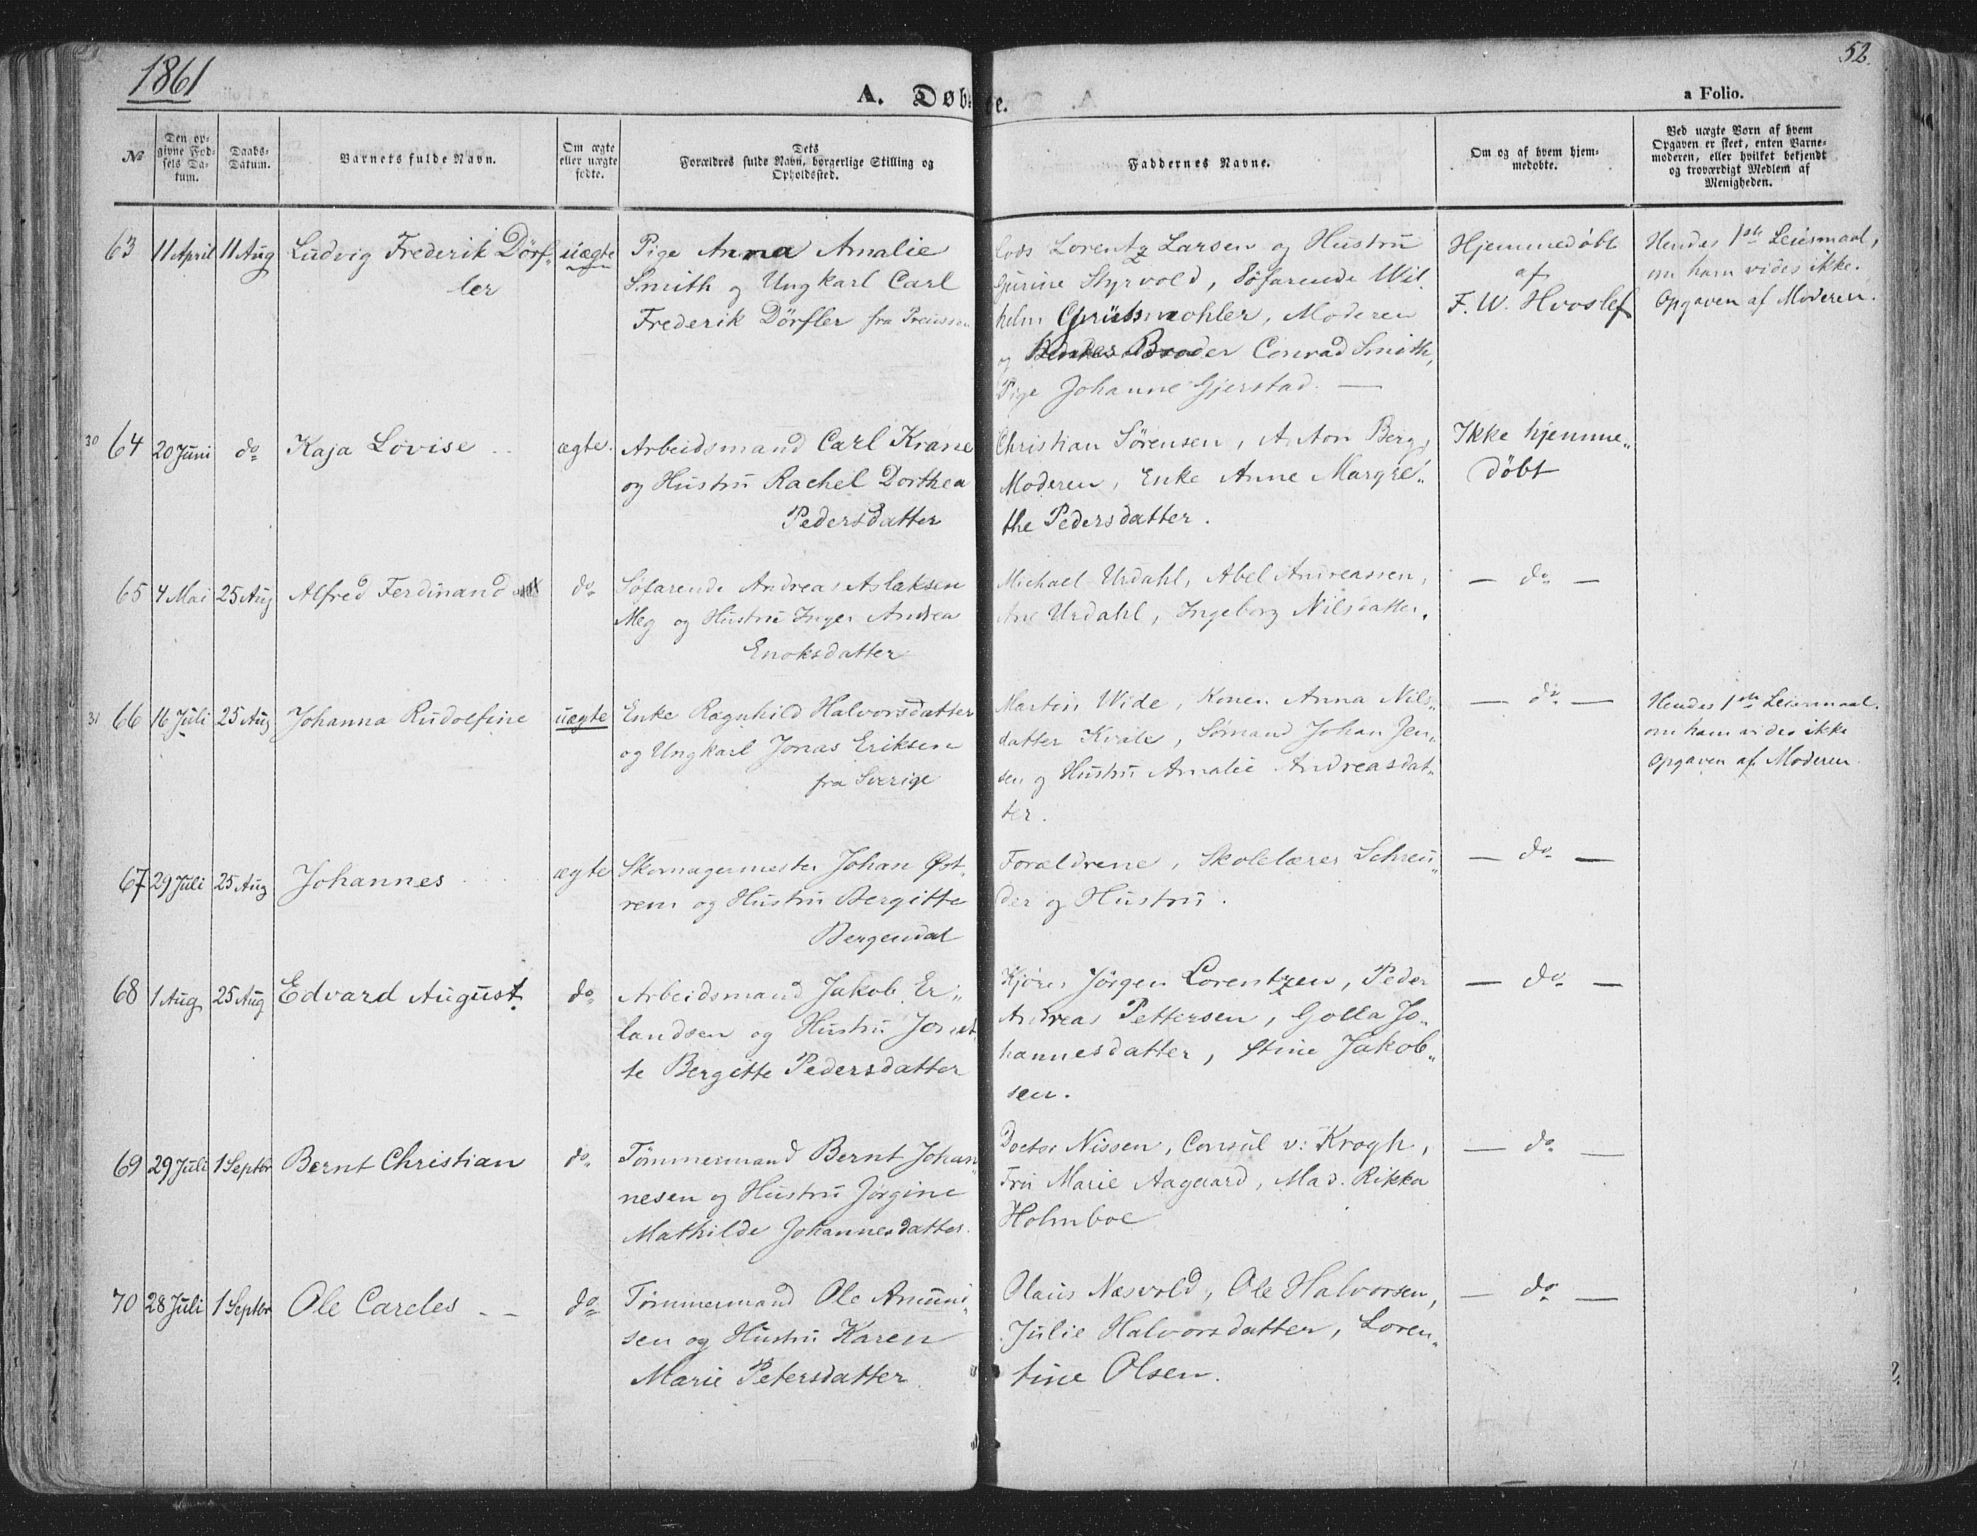 1861
52.
A. Døbte.
a Folio.
No
Den opgivne Fødsels Datum.
Daabs-Datum.
Barnets fulde Navn.
Om ægte eller uægte fødte.
Dets Forældres fulde Navn, borgerlige Stilling og Opholdssted.
Faddernes Navne.
Om og af hvem hjemmedøbte.
Ved uægte Børn af hvem Opgaven er skeet, enten Barnemoderen, eller hvilket bekjendt og troværdigt Medlem af Menigheden.
63 11 April 11 Aug Ludvig Frederik Dörf-
ler
uægte
Pige Anna Amalie
Smith og Ungkarl Carl
Frederik Dörfler fra Preussen
Lods Lorentz Larsen og Hustru
Gurine Styrvold, Søfarende Wil-
helm Grütsmohler, Moderen
og Hendes Broder Conrad Smith,
Pige Johanne Gjerstad. —
Hjemmedøbt
af
F. W. Hvoslef
Hendes 1ste Leiermaal,
om ham vides ikke.
Opgaven af Moderen.
30 64 20 Juni do Kaja Lovise
ægte.
Arbeidsmand Carl Krane
og Hustru Rachel Dorthea
Pedersdatter
Christian Sørensen, Anton Berg,
Moderen, Enke Anne Margre-
the Pedersdatter.
Ikke hjemme-
døbt
65 4 Mai 25 Aug Alfred Ferdinand
do
Søfarende Andreas Aslaksen
Meg og Hustru Inger Andrea
Enoksdatter
Michael Urdahl, Abel Andreassen,
Ane Urdahl, Ingeborg Nilsdatter.
— do —
31 66 16 Juli 25 Aug Johanna Rudolfine
uægte
Enke Ragnhild Halvorsdatter
og Ungkarl Jonas Eriksen
fra Sverige
Martin Wide, Konen Anna Nils-
datter Kvale, Sømand Johan Jen-
sen og Hustru Amalie Andreasdat-
ter.
— do —
Hendes 1ste Leiermaal.
om ham vides ikke
Opgaven af Moderen
67 29 Juli 25 Aug Johannes
ægte
Skomagermester Johan Øst-
rem og Hustru Bergitte
Bergendal
Forældrene, Skolelærer Schreu-
der og Hustru.
— do —
68 1 Aug 25 Aug Edvard August
do
Arbeidsmand Jakob Er-
landsen og Hustru Jonet-
te Bergitte Pedersdatter
Kjører Jørgen Lorentzen, Peder
Andreas Pettersen, Golla Jo-
hannesdatter, Stine Jakob-
sen.
— do —
69 29 Juli 1 Septbr Bernt Christian
do
Tømmermand Bernt Johan-
nesen og Hustru Jørgine
Mathilde Johannesdatter.
Doctor Nissen, Consul v: Krogh,
Fru Marie Aagaard, Mad. Rikka
Holmboe
— do —
70 28 Juli 1 Septbr Ole Careles —
do
Tømmermand Ole Amund-
sen og Hustru Karen
Marie Petersdatter
Olaus Næsvold, Ole Halvorsen,
Julie Halvorsdatter, Loren-
tine Olsen.
— do —